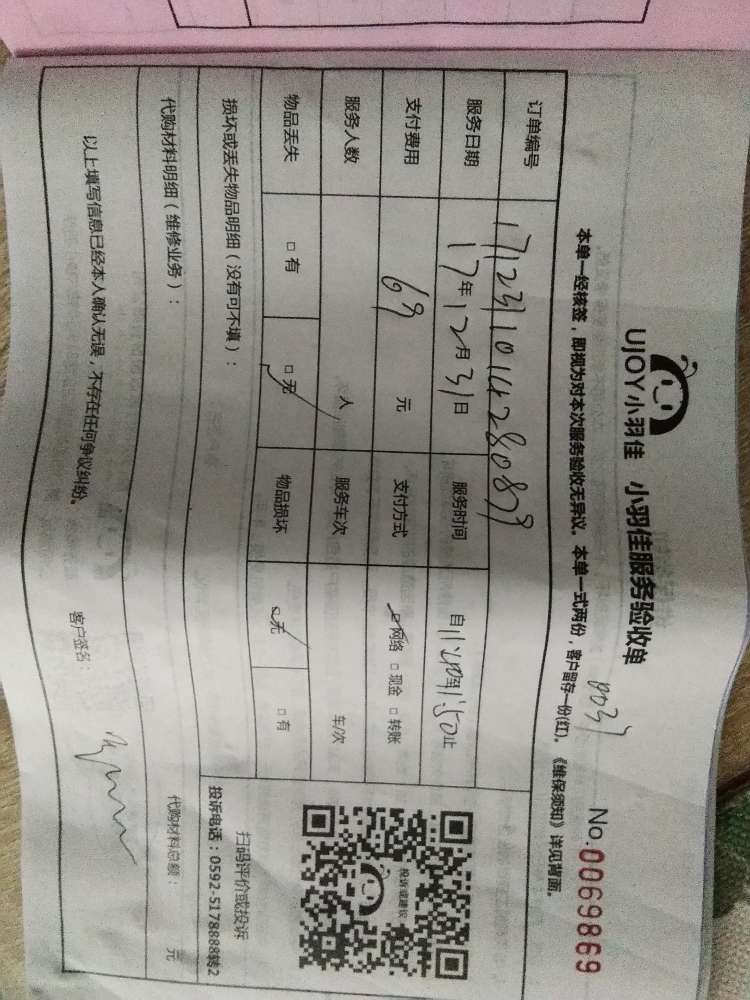 UJOY小羽佳 小羽佳服务验收单
No.0069869
本单一经核签，即视为对本次服务验收无异议。本单一式两份，客户留存一份(红)。《维保须知》详见背面。
订单编号
服务日期 17年12月31日 服务时间
支付费用 69 元 支付方式 网络 现金 转账
服务人数 人 服务车次 车/次
物品丢失 有 无 物品损坏 无 有
损坏或丢失物品明细（没有可不填）：
代购材料明细（维修业务）： 代购材料总额： 元
以上填写信息已经本人确认无误，不存在任何争议纠纷。 客户签名：
投诉或建议
扫码评价或投诉
投诉电话：0592-5178888转2